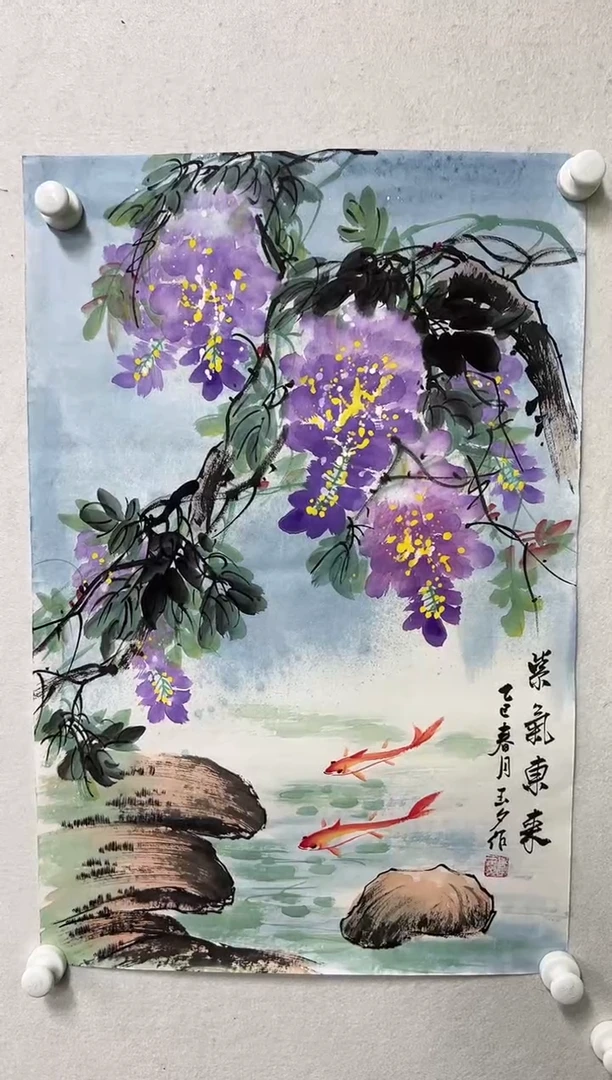 紫氣東来
乙巳春月玉夕作